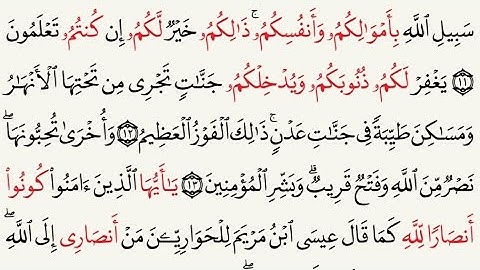 سَبِيلِ ٱللَّهِ بِأَمْوَٰلِكُمُۥ وَأَنفُسِكُمُۥۚ ذَٰلِكُمُۥ خَيْرٌ لَّكُمُۥ إِن كُنتُمُۥ تَعْلَمُونَ
١١ يَغْفِرْ لَكُمُۥ ذُنُوبَكُمُۥ وَيُدْخِلْكُمُۥ جَنَّٰتٍ تَجْرِى مِن تَحْتِهَا ٱلْأَنْهَٰرُ
وَمَسَٰكِنَ طَيِّبَةً فِى جَنَّٰتِ عَدْنٍۚ ذَٰلِكَ ٱلْفَوْزُ ٱلْعَظِيمُ ١٢ وَأُخْرَىٰ تُحِبُّونَهَاۖ
نَصْرٌ مِّنَ ٱللَّهِ وَفَتْحٌ قَرِيبٌۗ وَبَشِّرِ ٱلْمُؤْمِنِينَ ١٣ يَٰٓأَيُّهَا ٱلَّذِينَ ءَامَنُوا۟ كُونُوٓا۟
أَنصَارًا لِّلَّهِ كَمَا قَالَ عِيسَى ٱبْنُ مَرْيَمَ لِلْحَوَارِيِّۦنَ مَنْ أَنصَارِى إِلَى ٱللَّهِۖ